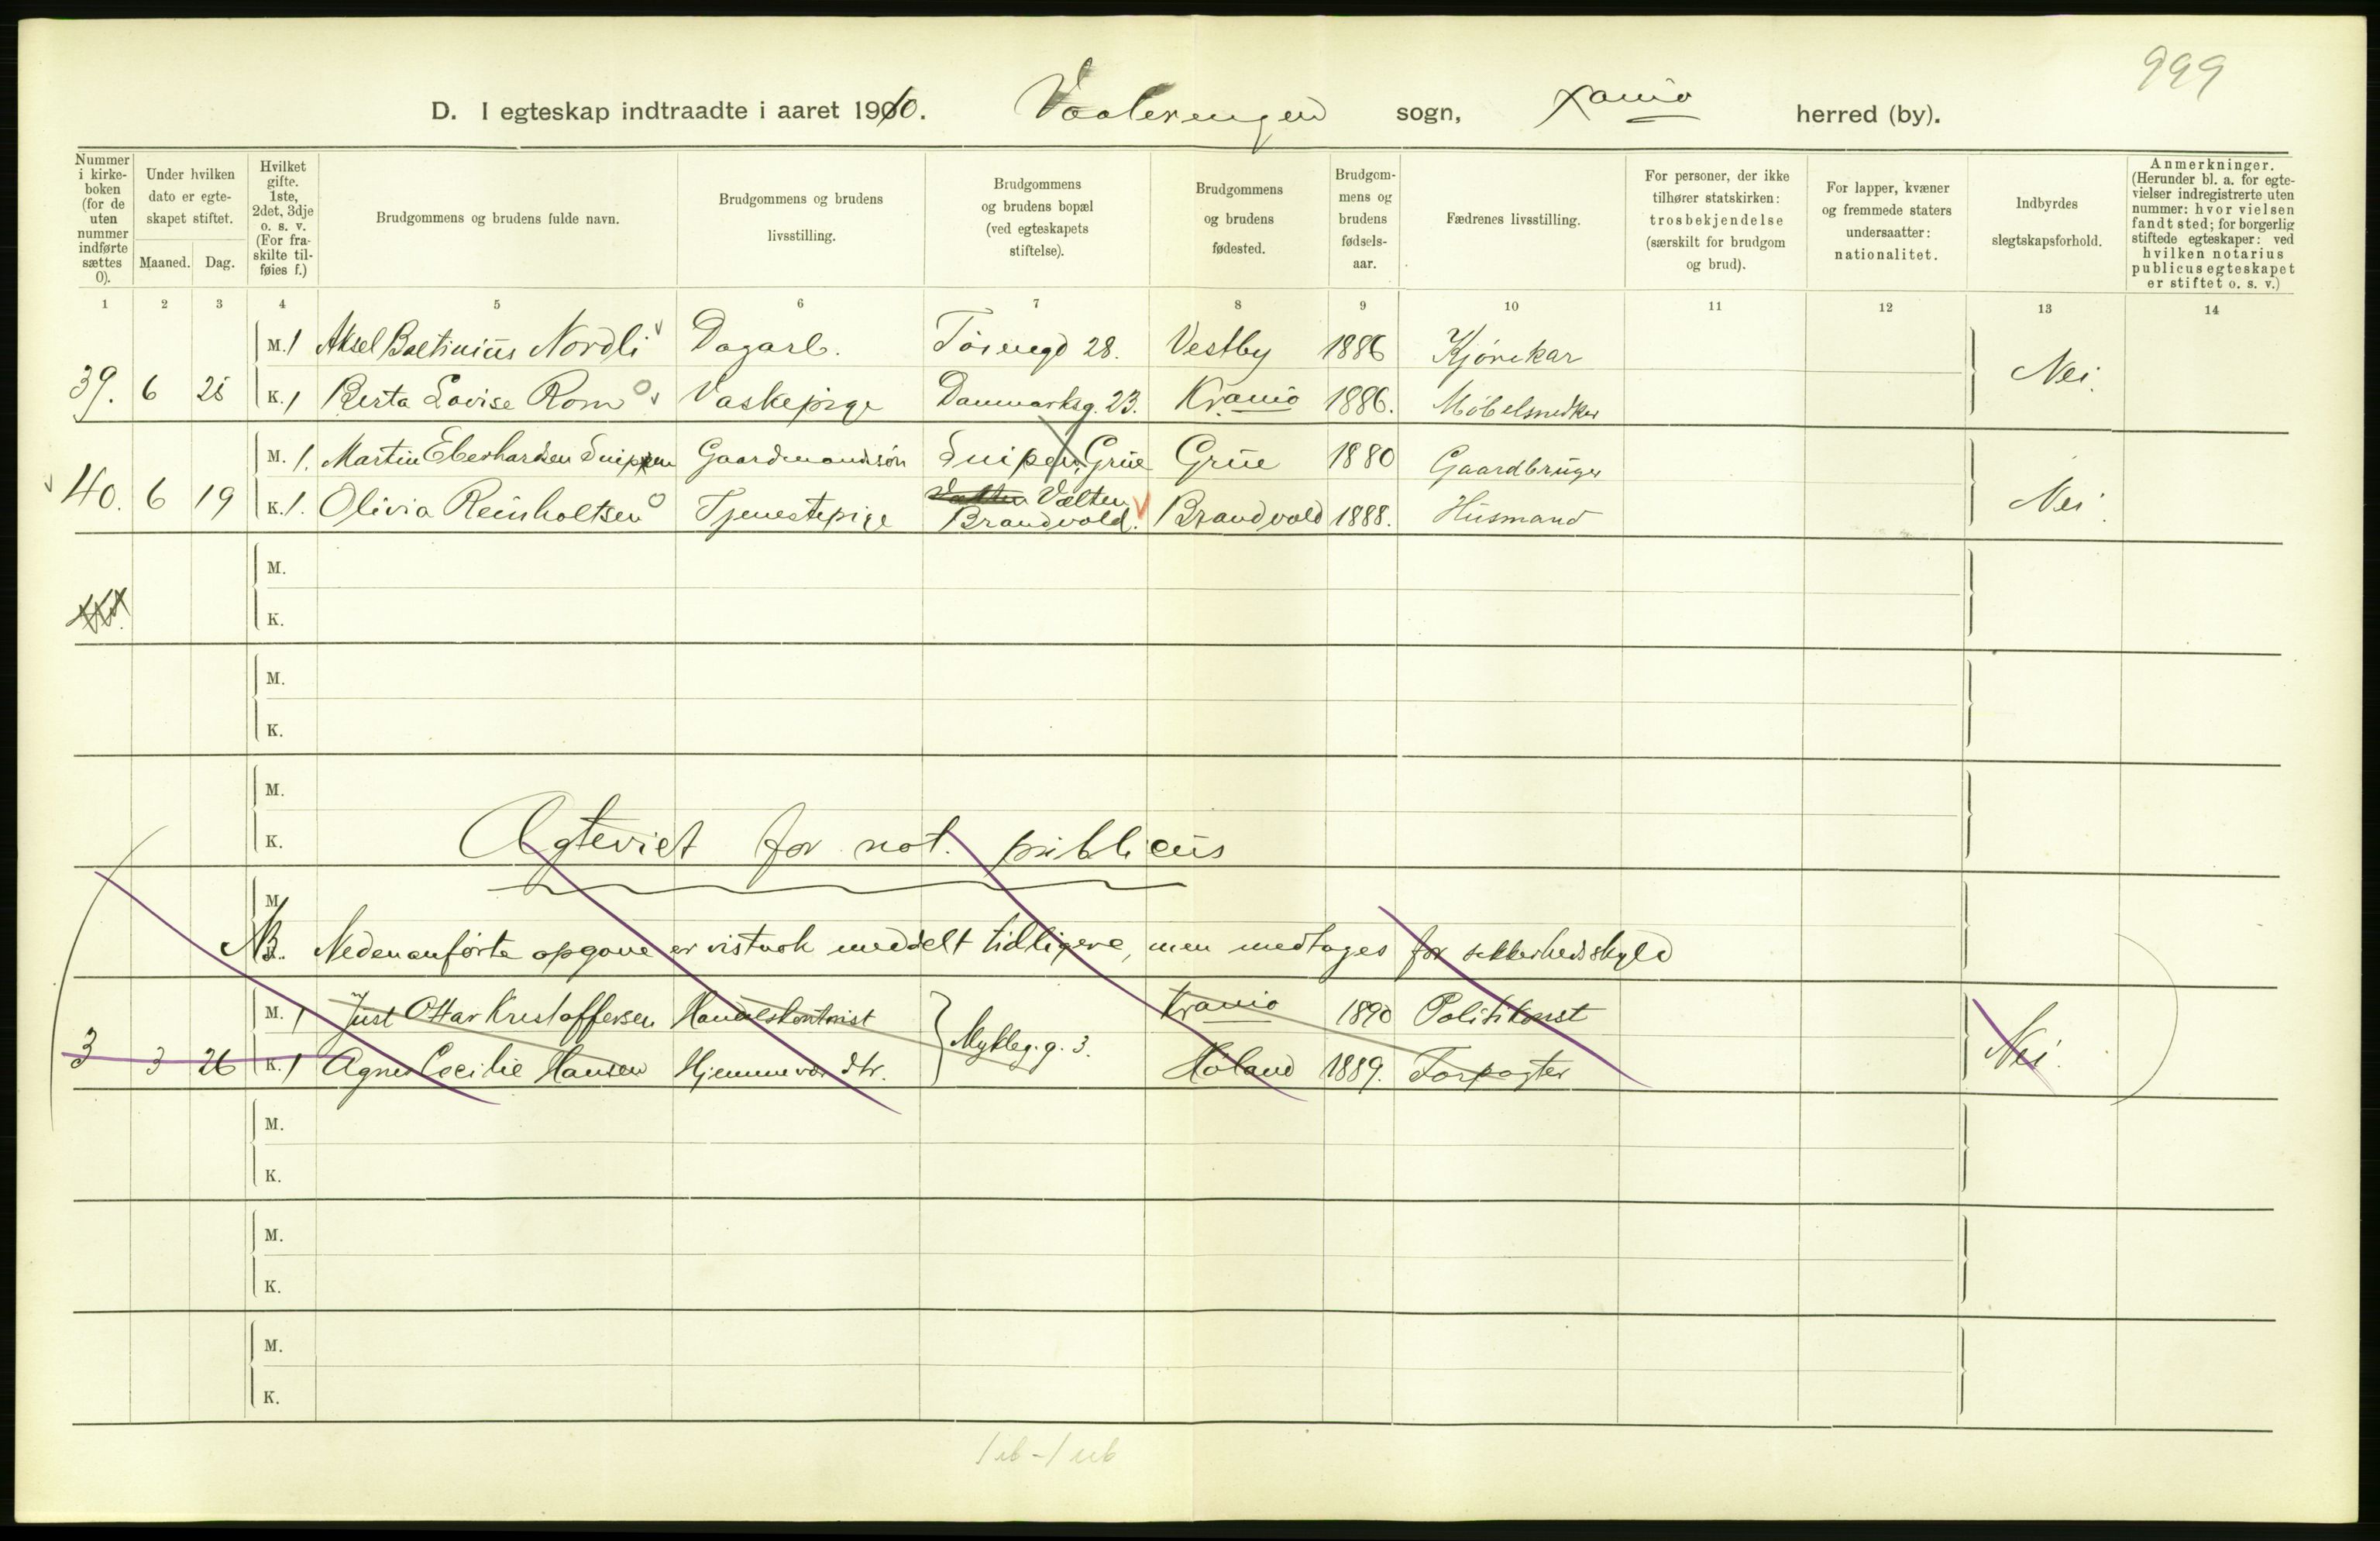 999
D. I egteskap indtraadte i aaret 1910. Vaalerengen sogn, Xania herred (by).
Nummer i kirkeboken (for de uten nummer indførte sættes 0).
Under hvilken dato er egteskapet stiftet.
Maaned. Dag.
Hvilket gifte. 1ste, 2det, 3dje o. s. v. (For fraskilte tilføies f.)
Brudgommens og brudens fulde navn.
Brudgommens og brudens livsstilling.
Brudgommens og brudens bopæl (ved egteskapets stiftelse).
Brudgommens og brudens fødested.
Brudgommens og brudens fødselsaar.
Fædrenes livsstilling.
For personer, der ikke tilhører statskirken: trosbekjendelse (særskilt for brudgom og brud).
For lapper, kvæner og fremmede staters undersaatter: nationalitet.
Indbyrdes slegtskapsforhold.
Anmerkninger. (Herunder bl. a. for egtevielser indregistrerte uten nummer: hvor vielsen fandt sted; for borgerlig stiftede egteskaper: ved hvilken notarius publicus egteskapet er stiftet o. s. v.)
1 2 3 4 5 6 7 8 9 10 11 12 13 14
M. 1 Aksel Bastinius Nordli Dagarb. Töiengd 28. Vestby 1886 Kjørekar
39. 6 25 K. 1 Berta Lovise Rom Vaskepige Danmarksg. 23. Krania 1886. Møbelsnedker Nei.
M. 1. Martin Eberhardsen Snippen Gaardmandsøn Snipen, Grue Grue 1880 Gaardbruger
40. 6 19 K. 1. Olivia Reinholtsen Tjenestepige Vælten Brandvold. Brandvold 1888. Husmand Nei.
M.
K.
M.
K.
M.
K.
Ægteviet for not. publicus
M.
NB. Nedenanførte opgave er vistnok meddelt tidligere, men medtages for sikkerhedsskyld
M. 1 Just Ottar Kristoffersen Handelskontorist Mykleg. g. 3. Krania 1890 Politikonst
3 3 26 K. 1 Agnes Cecilie Hansen Hjemmevær. dtr. Høland 1889. Forpagter Nei.
M.
K.
M.
K.
M.
K.
1 ub - 1 ub